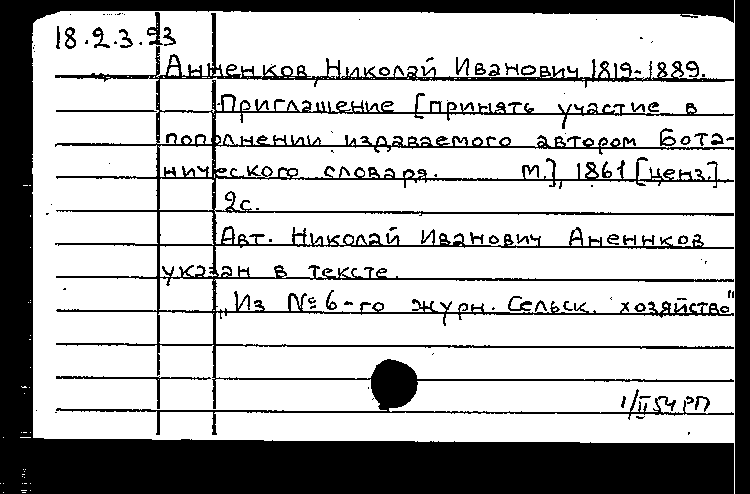 18.2.3.23
Анненков, Николай Иванович, 1819-1889.
Приглашение [принять участие в
пополнении издаваемого автором Бота-
нического словаря. М.], 1861 [ценз.]
2с.
Авт. Николай Иванович Аненнков
указан в тексте.
„Из № 6-го журн. Сельск. хозяйство"
1/II 54 РП